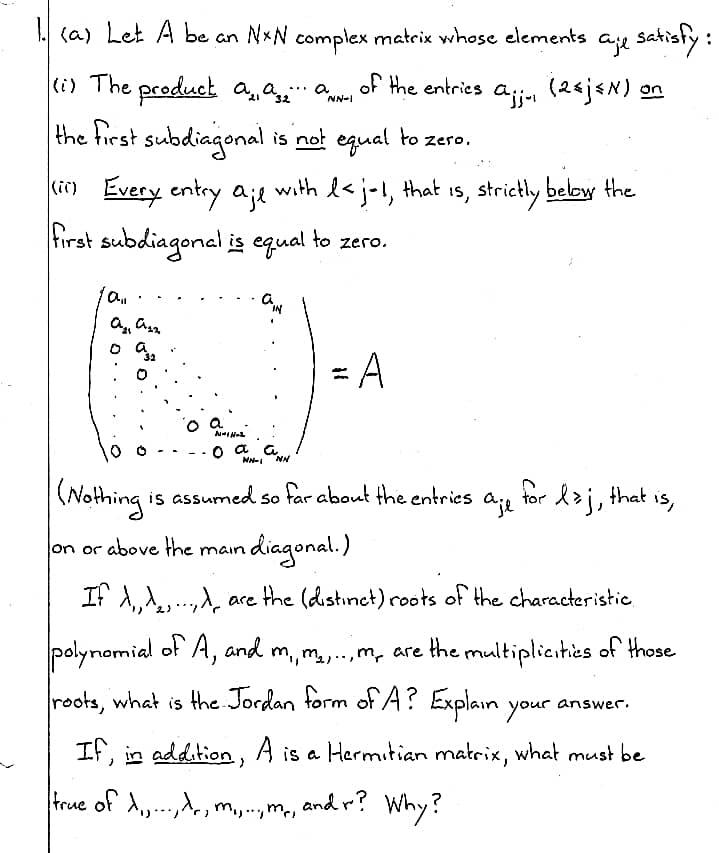 1. (a) Let A be an N×N complex matrix whose elements a_{jℓ} satisfy:
(i) The product a_{21} a_{32} ··· a_{NN-1} of the entries a_{jj-1} (2≤j≤N) on
the first subdiagonal is not equal to zero.
(ii) Every entry a_{jℓ} with ℓ< j-1, that is, strictly below the
first subdiagonal is equal to zero.
a_{11} · · · · · · · · a_{1N}
a_{21} a_{22}
0 a_{32}
0
= A
0 a_{N-1N-2}
0 0 - - - · · 0 a_{NN-1} a_{NN}
(Nothing is assumed so far about the entries a_{jℓ} for ℓ≥j, that is,
on or above the main diagonal.)
If λ_1, λ_2, ..., λ_r are the (distinct) roots of the characteristic
polynomial of A, and m_1, m_2, .., m_r are the multiplicities of those
roots, what is the Jordan form of A? Explain your answer.
If, in addition, A is a Hermitian matrix, what must be
true of λ_1, ..., λ_r, m_1, ..., m_r, and r? Why?